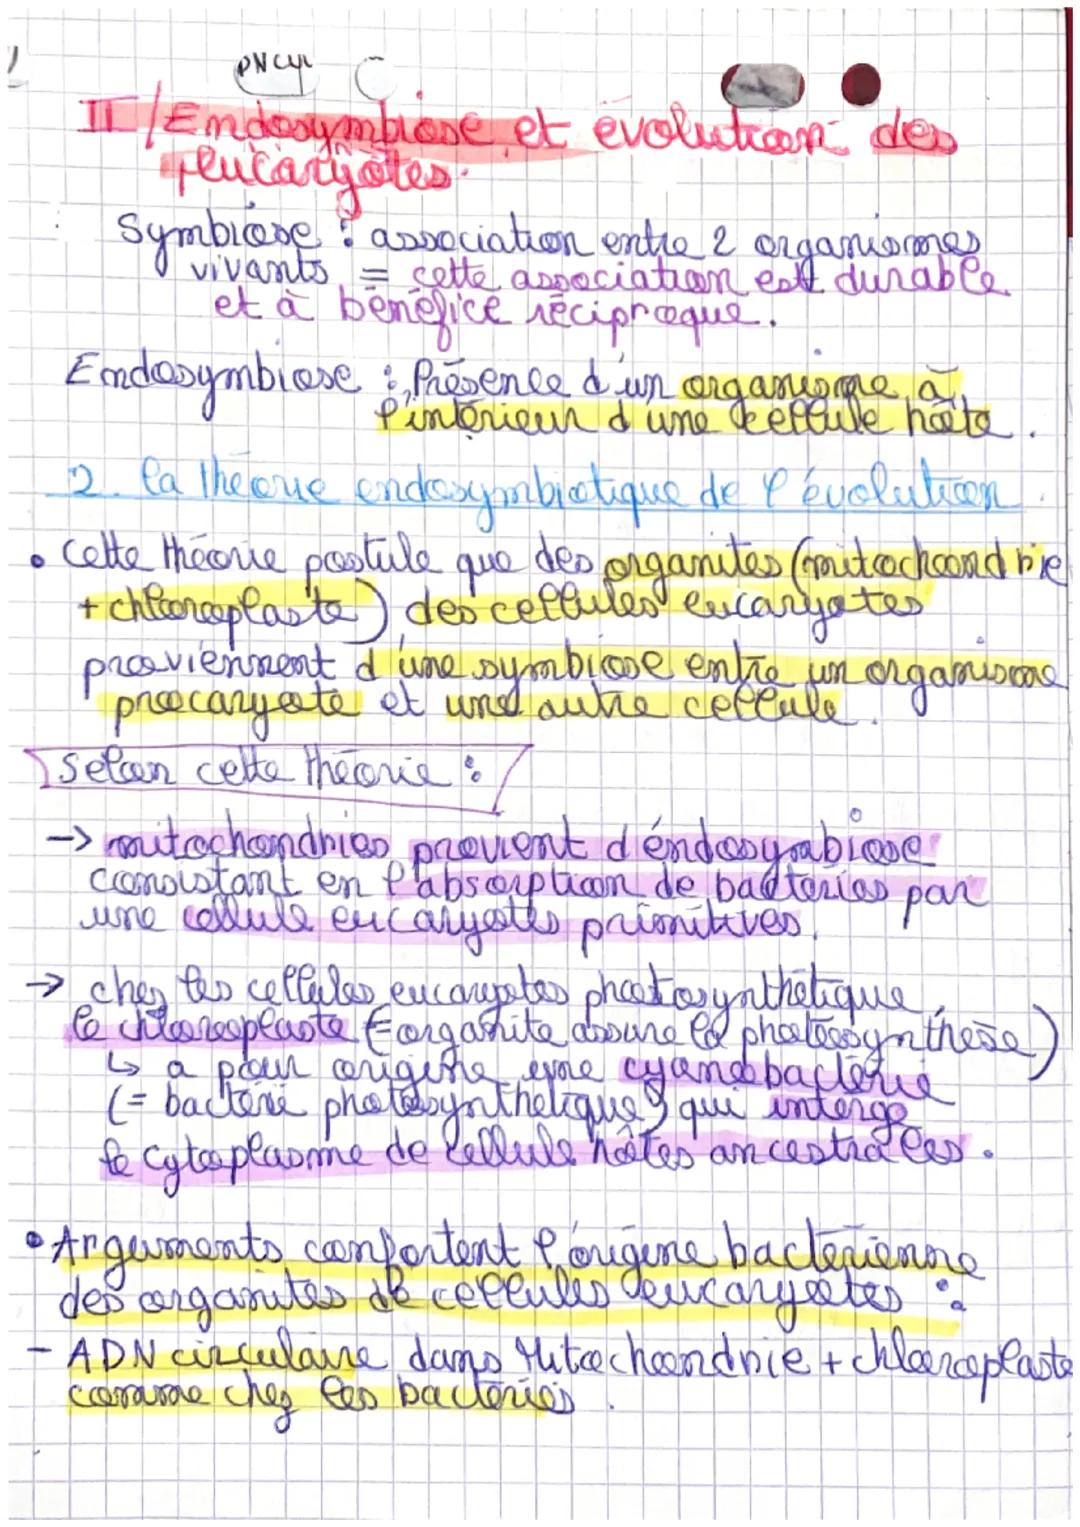 II/Endosymbiose et évolution des
eucaryotes.
Symbiose : association entre 2 organismes
vivants = cette association est durable
et à bénéfice réciproque.
Endosymbiose : Présence d'un organisme à
l'intérieur d'une cellule hôte.
2. la théorie endosymbiotique de l'évolution.
• Cette théorie postule que des organites (mitochondrie
+ chloroplaste) des cellules eucaryotes
proviennent d'une symbiose entre un organisme
procaryote et une autre cellule.
Selon cette théorie :
-> mitochondries provient d'éndosymbiose
consistant en l'absorption de bactéries par
une cellule eucaryotes primitives.
-> chez les cellules eucaryotes photosynthétique,
le chloroplaste (=organite assure la photosynthèse)
↳ a pour origine une cyanobactérie
(= bactérie photosynthétique) qui interge
le cytoplasme de cellule hôtes ancestrales.
• Arguments confortent l'origine bactérienne
des organites de cellules eucaryotes :
- ADN circulaire dans Mitochondrie + chloroplaste
comme chez les bactéries.